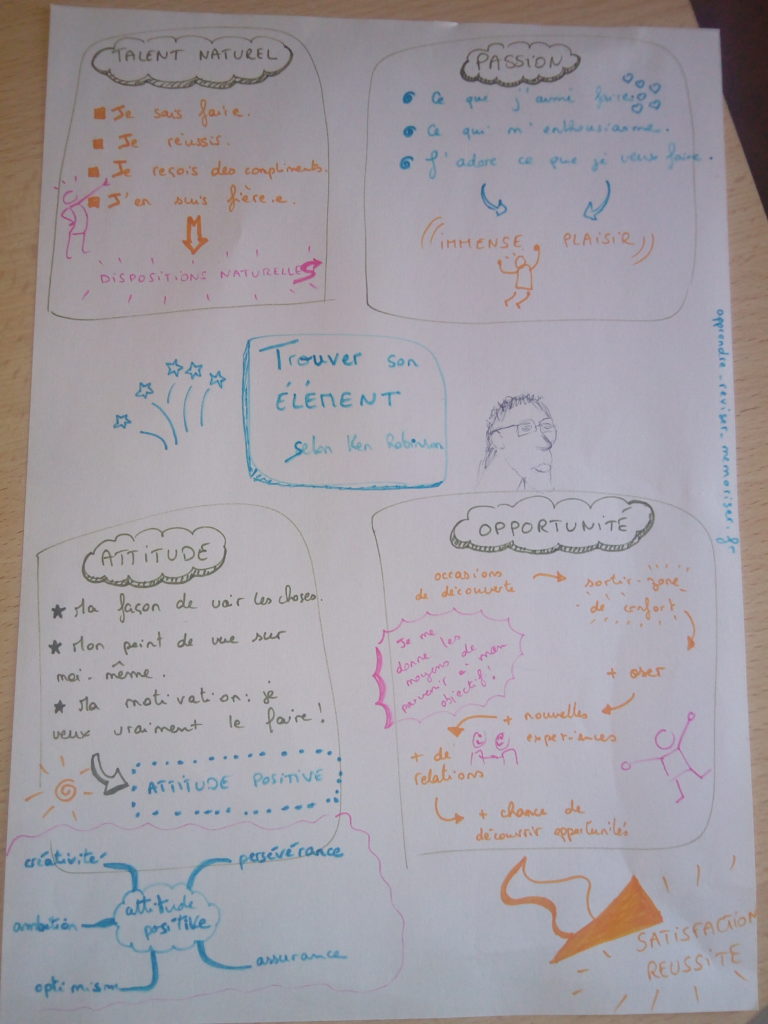 TALENT NATUREL
Je sais faire.
Je réussis.
Je reçois des compliments.
J'en suis fièr.e.
DISPOSITIONS NATURELLES
PASSION
Ce que j'aime faire
Ce qui m'enthousiasme.
J'adore ce que je veux faire.
IMMENSE PLAISIR
Trouver son
ÉLÉMENT
selon Ken Robinson
apprendre-reviser-memoriser.fr
ATTITUDE
Ma façon de voir les choses.
Mon point de vue sur
moi-même.
Ma motivation: je
veux vraiment le faire!
ATTITUDE POSITIVE
OPPORTUNITÉ
occasions
de découverte
sortir zone
de confort
+ oser
+ nouvelles
expériences
+ de
relations
+ chance de
découvrir opportunités
Je me
donne les
moyens de
parvenir à mon
objectif!
créativité
persévérance
attitude
positive
ambition
assurance
optimisme
SATISFACTION
REUSSITE